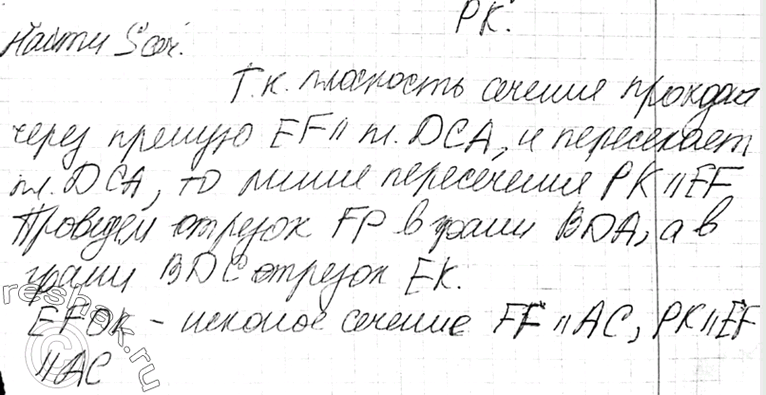 PK.
Найти Sсеч.
Т.к. плоскость сечения проходит
через прямую EF II пл. DCA, и пересекает
пл. DCA, то линия пересечения PK II EF
Проведем отрезок FP в грани BDA, а в
грани BDC отрезок EK.
EFDK - искомое сечение FF II AC, PK II EF
II AC
reshak.ru